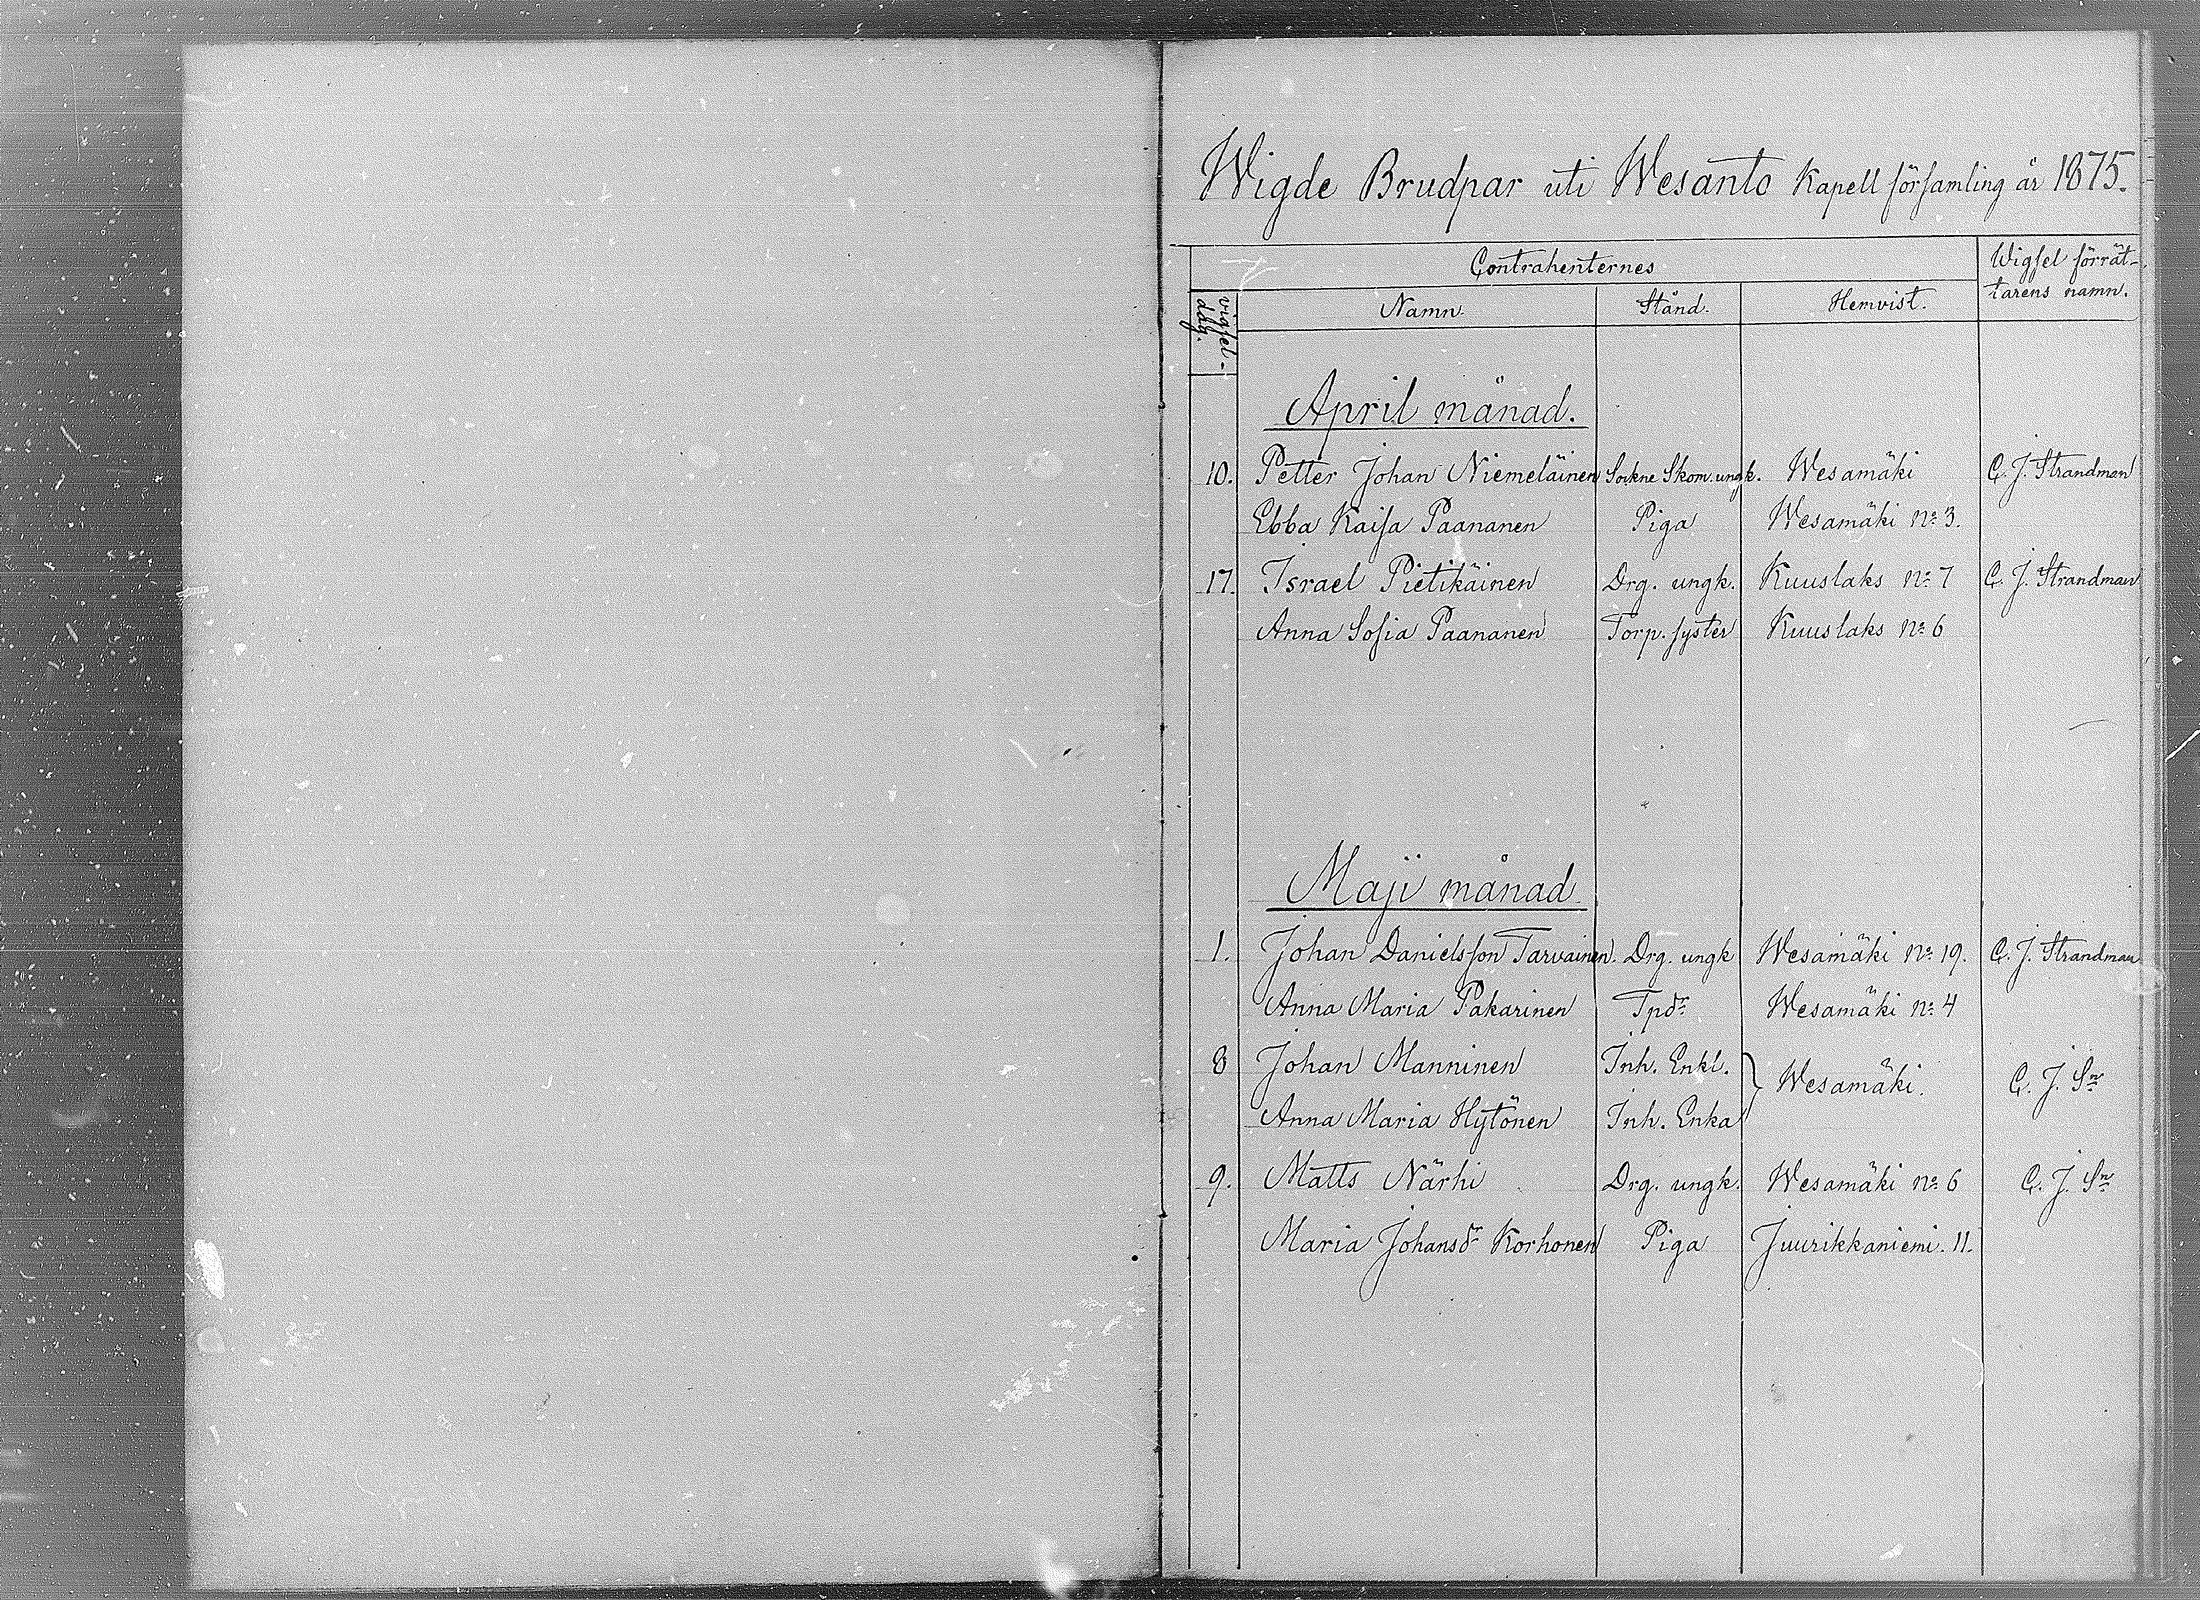 Wigde Brudpar uti Wesanto Kapell församling år 1875.
Contrahenternes
Wigsel förrät-
tarens namn.
vigsel-
dag.
Namn.
Stånd.
Hemvist.
April månad.
10. Petter Johan Niemeläinen Sockne Skom. ungk. Wesamäki C. J. Strandman
Ebba Kaisa Paananen Piga Wesamäki No 3.
17. Israel Pietikäinen Drg. ungk. Kuuslaks No 7 C. J. Strandman
Anna Sofia Paananen Torp. syster Kuuslaks No 6
Maji månad
1. Johan Danielsson Tarvainen. Drg. ungk Wesamäki No 19. C. J. Strandman
Anna Maria Pakarinen Tpdr Wesamäki No 4
8 Johan Manninen Inh. Enkl. Wesamäki. C. J. Sn
Anna Maria Hytönen Inh. Enka
9. Matts Närhi Drg. ungk. Wesamäki No 6 C. J. Sn
Maria Johansdr Korhonen Piga Juurikkaniemi. 11.